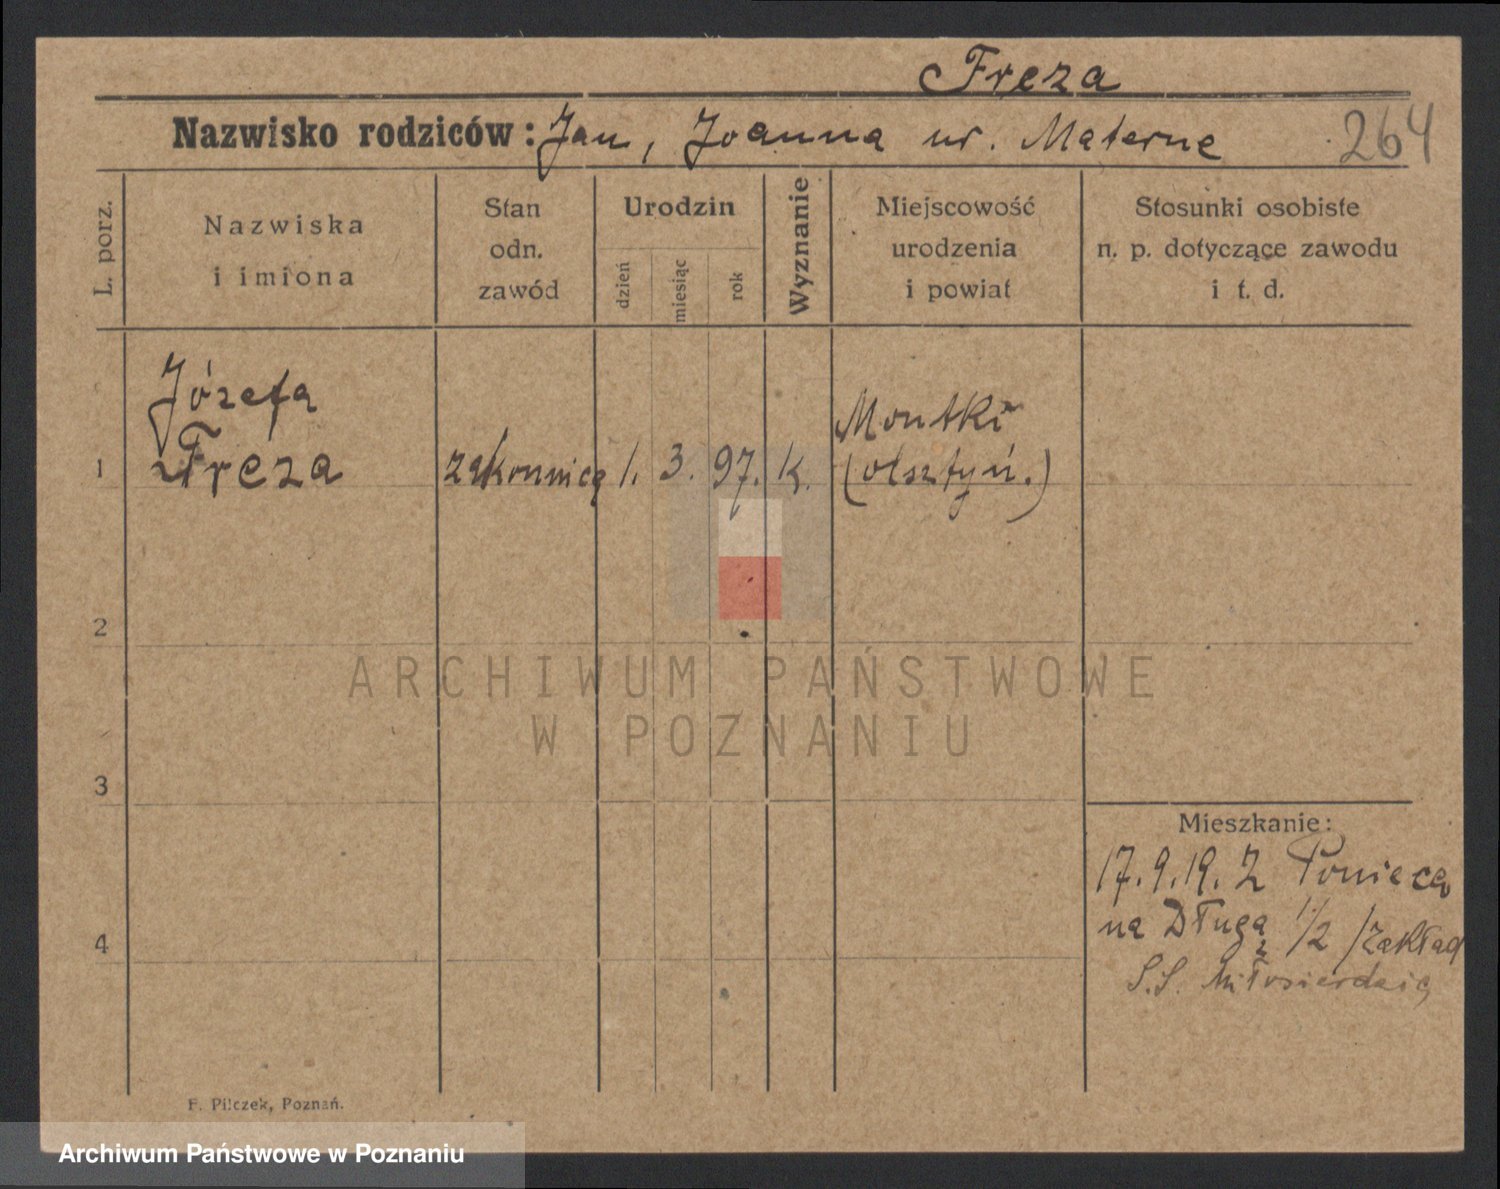 Freza
Nazwisko rodziców: Jan, Joanna ur. Materne 264
L. porz.
Nazwiska
i imiona
Stan
odn.
zawód
Urodzin
dzień
miesiąc
rok
Wyznanie
Miejscowość
urodzenia
i powiat
Stosunki osobiste
n. p. dotyczące zawodu
i t. d.
Józefa
Freza
1 zakonnica 1. 3. 97. k.
Montki
(olsztyń.)
2
3
4
Mieszkanie:
17.9.19. Z Ponieca
na Długą 1/2 /zakład
S.S. Miłosierdzia
F. Pilczek, Poznań.
ARCHIWUM PAŃSTWOWE
W POZNANIU
Archiwum Państwowe w Poznaniu